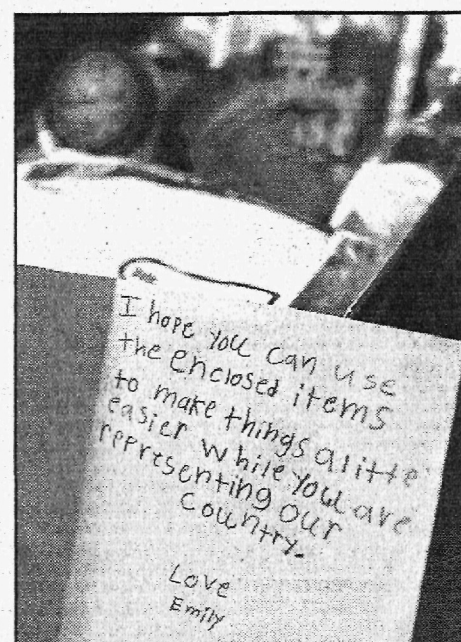 I hope you can use
the enclosed items
to make things a litte
easier while you are
representing our
country.
Love
Emily